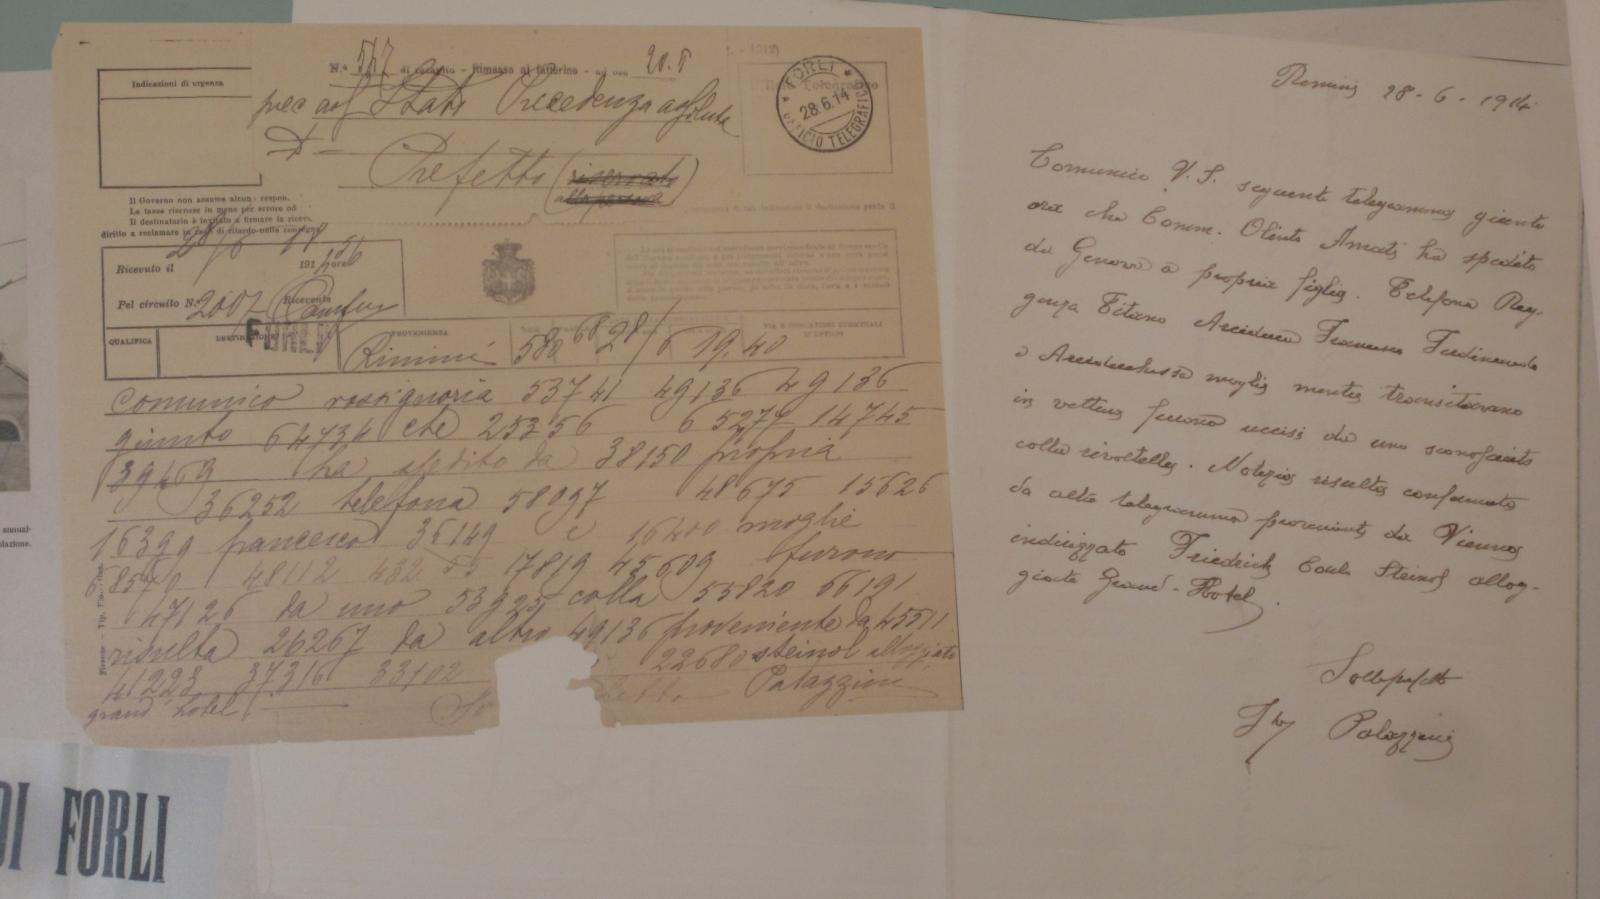 N.° 517 di recapito - Rimesso al fattorino - ad ore 20.5
Indicazioni di urgenza
prec ass Stato Precedenza assoluta
Prefetto (riservato
alla persona)
FORLI
28.6.14
UFFICIO TELEGRAFICO
Il Governo non assume alcuna respon.
Le tasse riscosse in meno per errore od
Il destinatario è invitato a firmare la ricev.
diritto a reclamare in caso di ritardo nella consegna
28/6
Ricevuto il 191 ore
Pel circuito N.° 2007 Ricevente
QUALIFICA DESTINAZIONE PROVENIENZA
FORLI Rimini 580 68 28/6 19.40
VIA E INDICAZIONI EVENTUALI D'UFFICIO
comunico vossignoria 53741 49136 49136
giunto 64734 che 25356 65277 14745
39469 ha spedito da 38150 propria
36252 telefona 58097 48675 15626
16399 francesco 36149 e 16400 moglie
68570 48112 432 17819 45609 furono
47126 da uno 53925 colla 55820 66191
risulta 26267 da altro 49136 proveniente da 45511
41223 37316 33102 22680 steinol alloggiato
grand hotel Palazzini
DI FORLI
annual-
lazione.
Rimini 28-6-1914
Comunico V. S. seguente telegramma giunto
ora che Comm. Olinto Amati ha spedito
da Genova a propria figlia. Telefona Reg-
genza Titano Arciduca Francesco Ferdinando
e Arciduchessa moglie mentre transitavano
in vettura furono uccisi da uno sconosciuto
colla rivoltella. Notizia risulta confermata
da altro telegramma proveniente da Vienna
indirizzato Friedrich Carlo Steinol allog-
giato Grand-Hotel.
Sottoprefetto
Palazzini